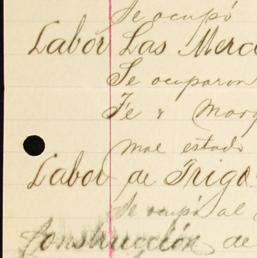 Se ocupó
Labor Las Merc
Se ocuparon
Fe y Marg
mal estado
Labor de Trigo
Se ocupó al
Construcción de